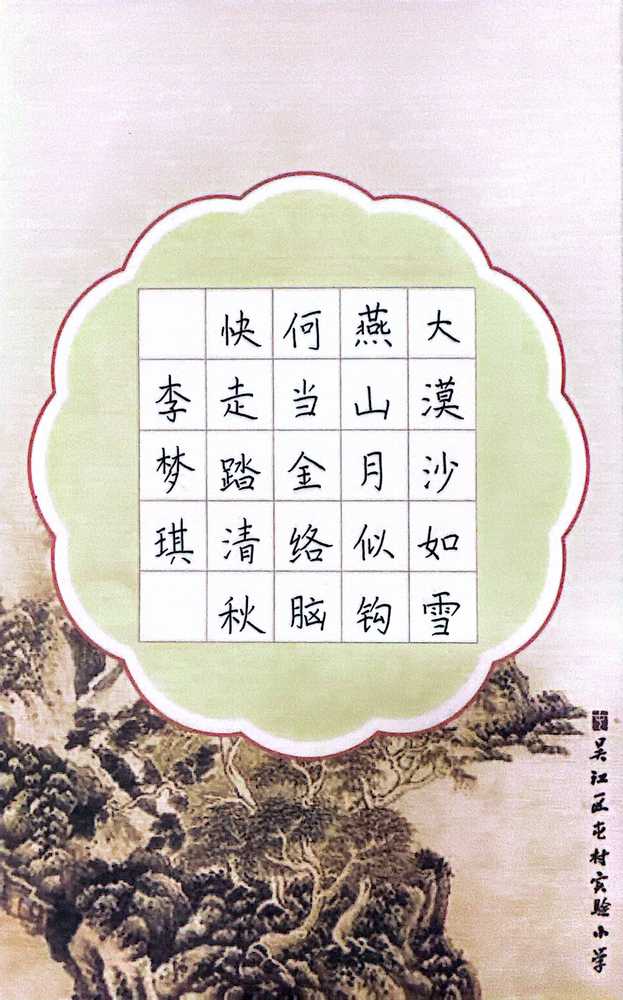 大漠沙如雪
燕山月似钩
何当金络脑
快走踏清秋
李梦琪
吴江区屯村实验小学